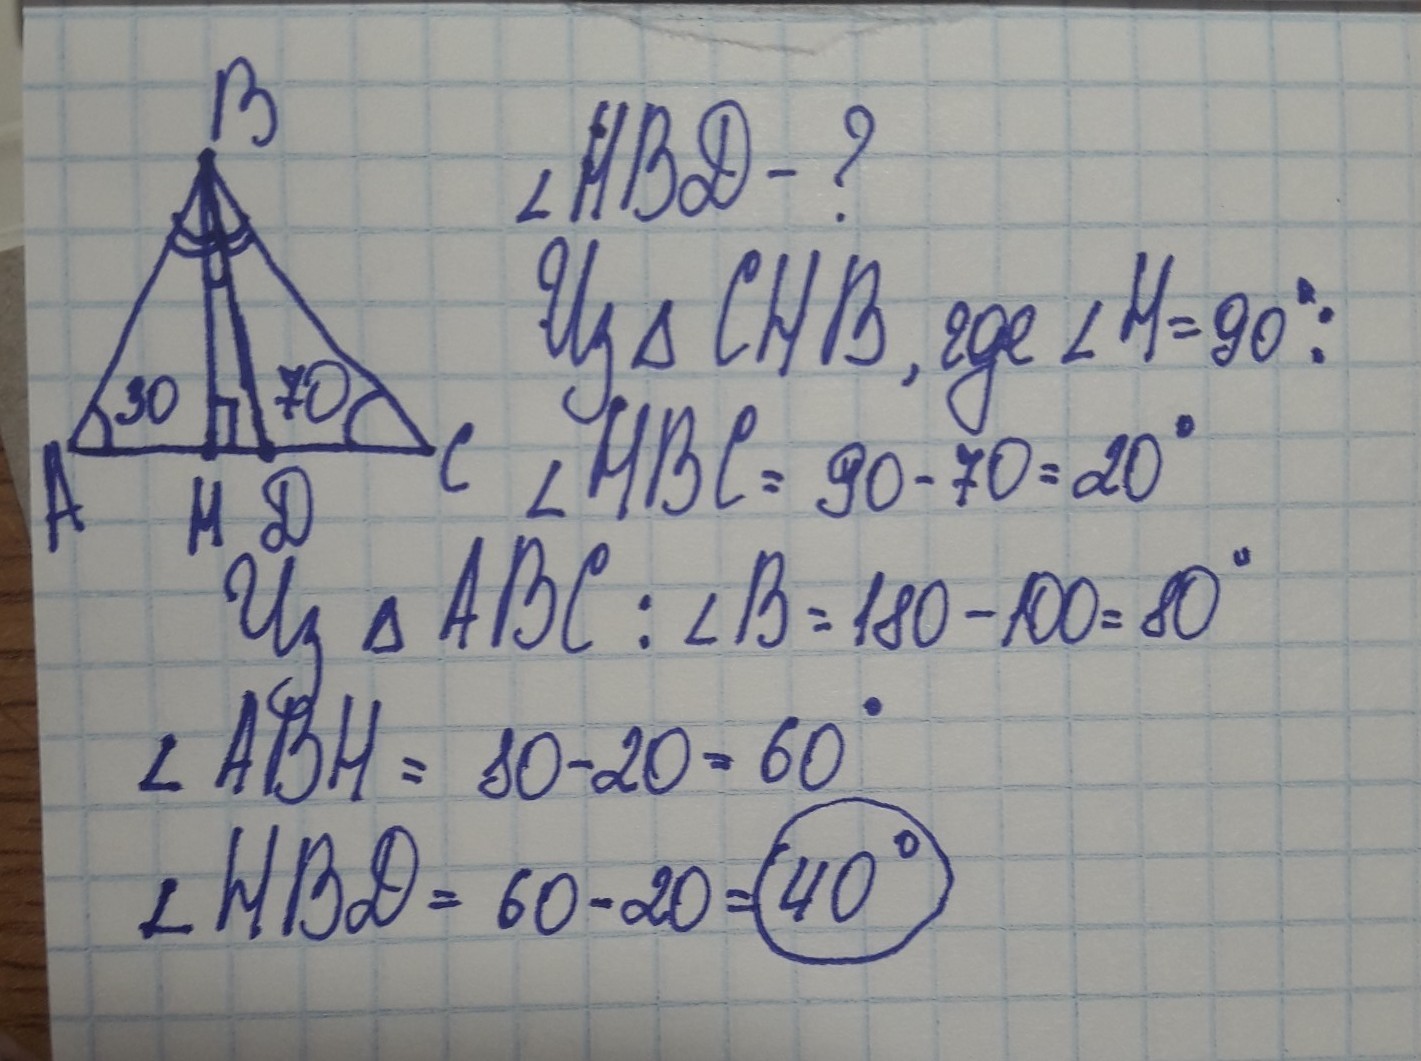 B
30
70
A
H
D
C
∠HBD - ?
Из △ CHB, где ∠H = 90°:
∠HBC = 90 - 70 = 20°
Из △ ABC : ∠B = 180 - 100 = 80°
∠ABH = 80 - 20 = 60°
∠HBD = 60 - 20 = 40°